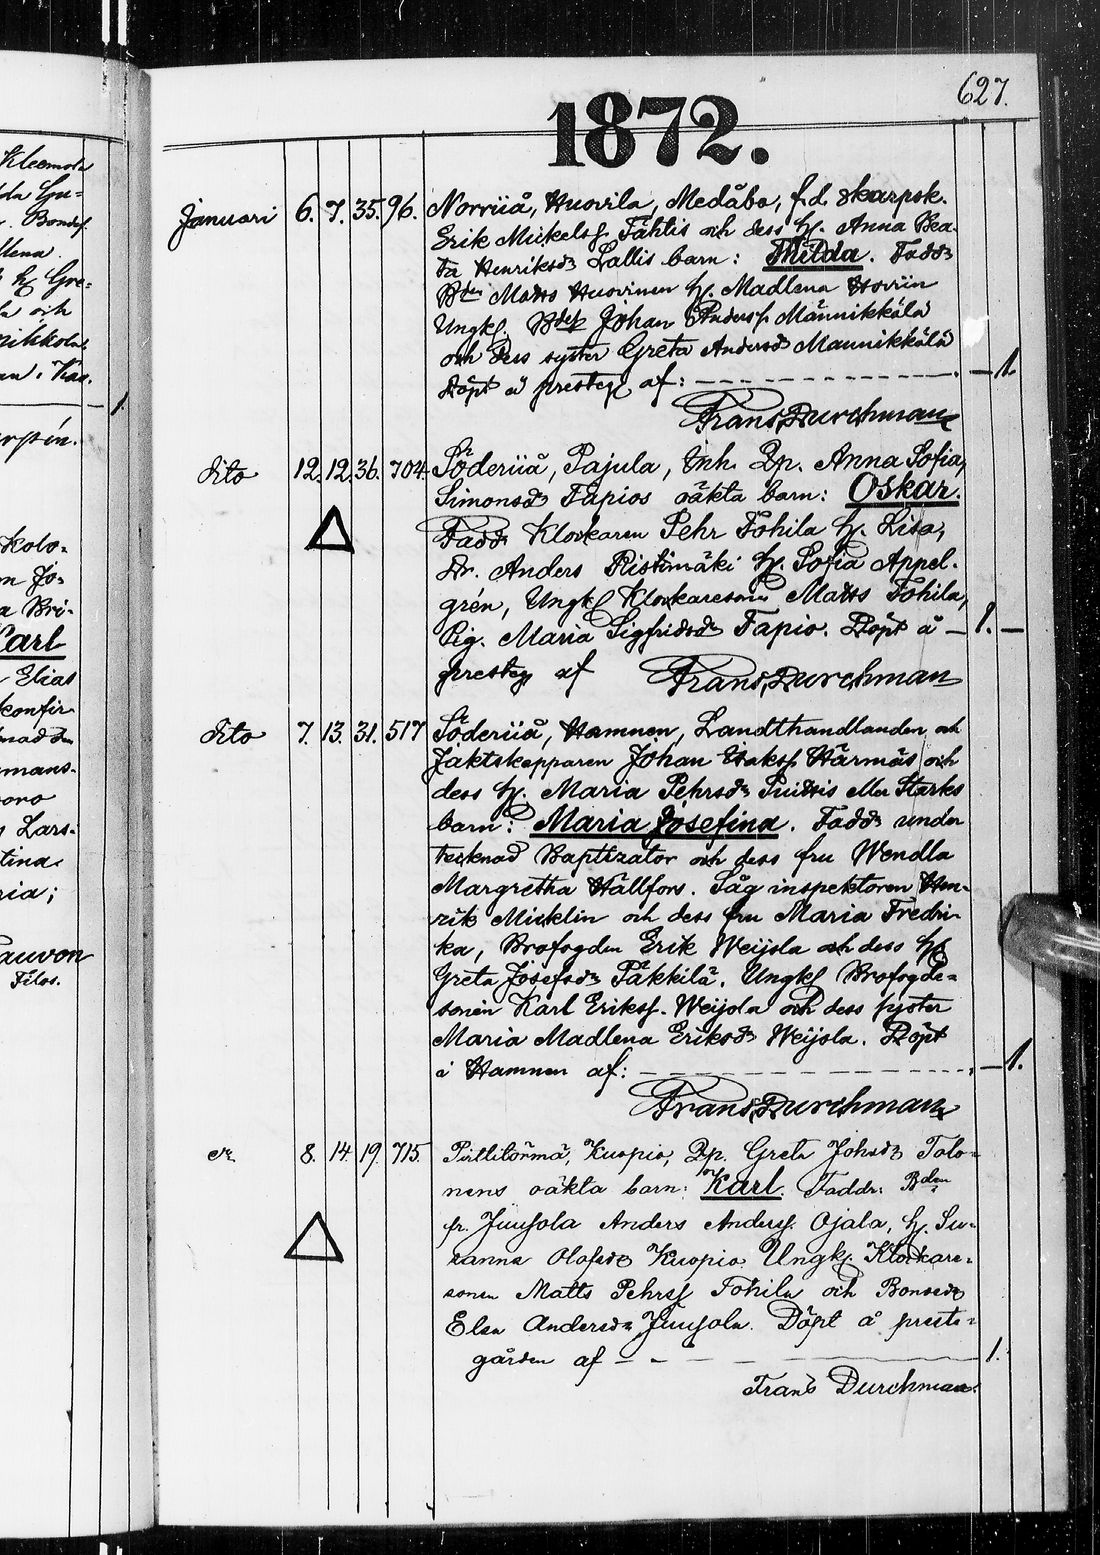 627.
1872.
Kleemola
Bonds.
llena
och
nikkola
an i Kas.
1.
Kolo-
a Bri-
Karl
Elias
konfir
mans-
Lars-
tina
ria;
Tauvon
Filos.
Januari 6. 7. 35. 96. Norriiå, Huovila, Medåbo, f.d. skarpsk.
Erik Mickelsf. Tähtis och dess h. Anna Bea-
ta Henriksdr Lallis barn: Hilda. Faddr
Bden Matts Huovinen h. Madlena Hoviin
Ungk. Bdes Johan Andersf. Männikkälä
och dess syster Greta Andersdr Mannikkälä
Döpt å presteg. af: 1.
Frans Durchman
dito 12. 12. 36. 704. Söderiiå, Pajula, Inh. Qp. Anna Sofia,
Simonsdr Tapios oäkta barn: Oskar.
Faddr Klockaren Pehr Tohila h. Lisa,
Dr. Anders Ristimäki h. Sofia Appel-
grén, Ungk Klockareson Matts Tohila,
Pig. Maria Sigfridsdr Tapio. Döpt å 1.
presteg af Frans Durchman
dito 7. 13. 31. 517 Söderiiå, Hamnen, Landthandlanden och
Jaktskepparen Johan Isaksf Härmäs och
dess h. Maria Pehrsdr eller Starks
barn: Maria Josefina. Faddr under
tecknad Baptizator och dess fru Wendla
Margretha Hällfors. Såg inspektoren Hen-
rik Micklin och dess fru Maria Fredri-
ka, Brofogden Erik Weijola och dess h
Greta Josefsdr Päkkilä. Ungk Brofogde-
sonen Karl Eriksf. Weijola och dess syster
Maria Madlena Eriksdr Weijola. Döpt
i Hamnen af: 1.
Frans Durchman
8. 14. 19. 715. Pirttitörmä, Kuopio, Qp. Greta Johsdr Tolo-
nens oäkta barn: Karl. Faddr: Bden
fr. Juujola Anders Andersf. Ojala, h. Su-
sanna Olofsdr Kuopio Ungk. Klockare-
sonen Matts Pehrsf Tohila och Bonsdr
Elsa Andersdr Juujola. Döpt å preste-
gården af 1.
Frans Durchman